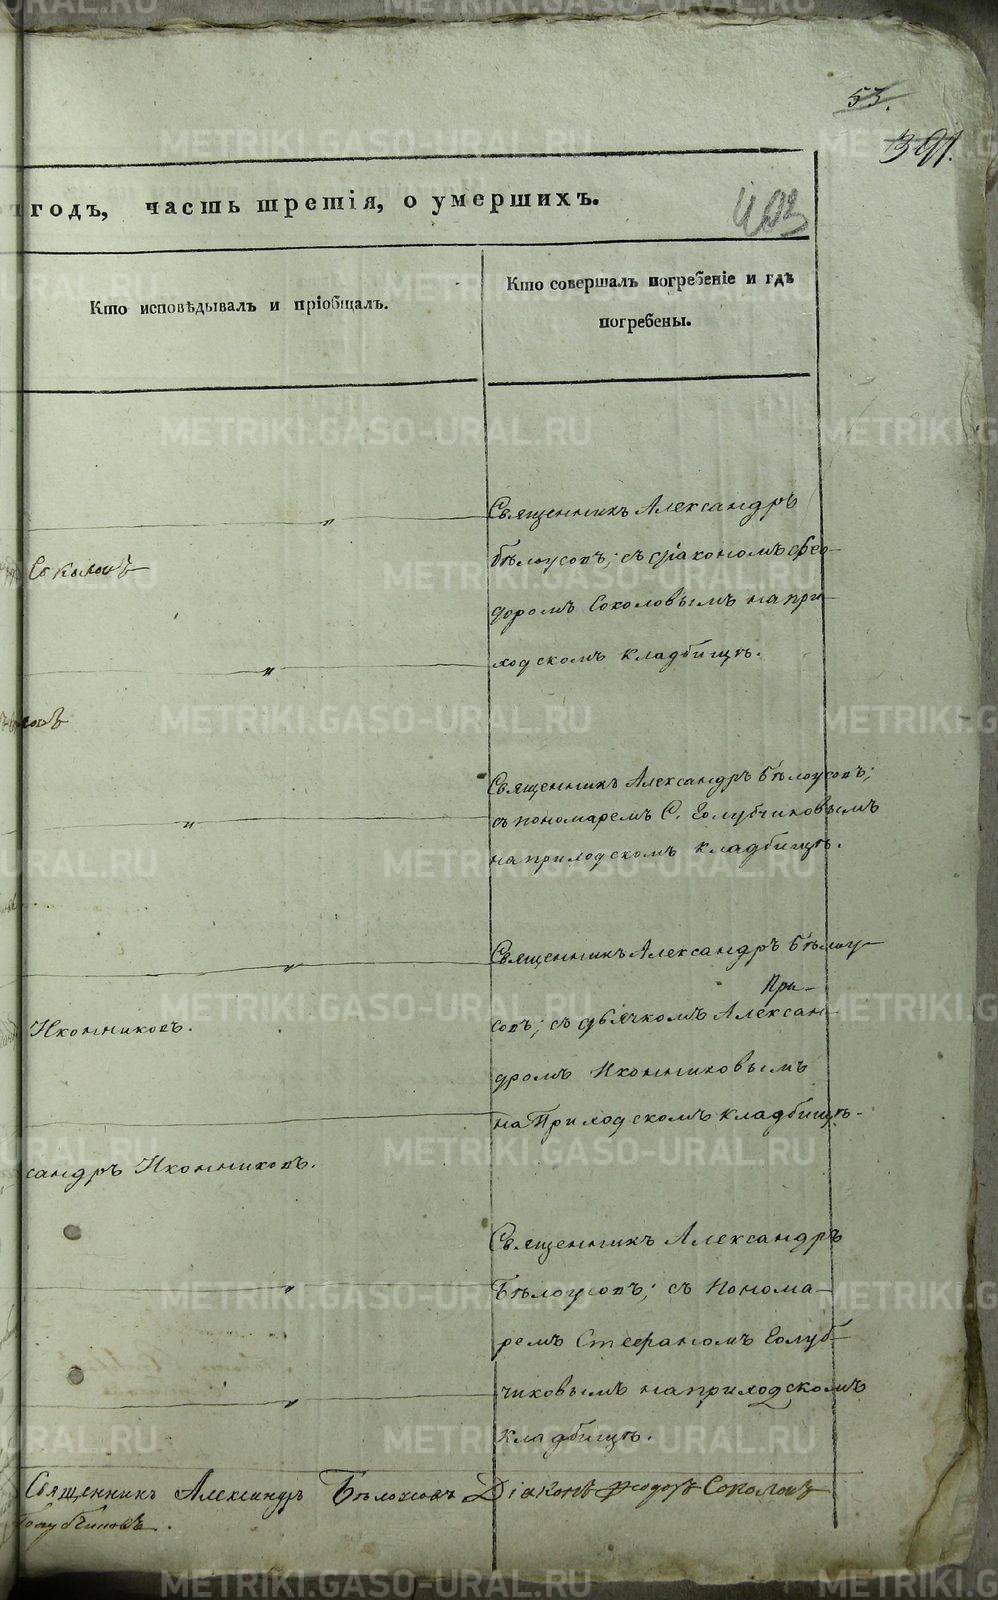 53.
391.
годъ, часть третія, о умершихъ.
403
Кто исповѣдывалъ и пріобщалъ.
Кто совершалъ погребеніе и гдѣ
погребены.
Священникъ Александръ
Бѣлоусовъ; съ діакономъ Ѳео-
Соколовъ
доромъ Соколовымъ на при-
ходскомъ кладбищѣ.
Священникъ Александръ Бѣлоусовъ;
съ пономаремъ С. Голубчиковымъ
на приходскомъ кладбищѣ.
Священникъ Александръ Бѣлоу-
При-
совъ; съ дьячкомъ Алексан-
Иконниковъ.
дромъ Иконниковымъ
на Приходскомъ кладбищѣ.
сандръ Иконниковъ.
Священникъ Александръ
Бѣлоусовъ; съ Понома-
ремъ Стефаномъ Голуб-
чиковымъ на приходскомъ
кладбищѣ.
Священникъ Александръ Бѣлоусовъ Діаконъ Ѳеодоръ Соколовъ
Голубчиковъ.
METRIKI.GASO-URAL.RU